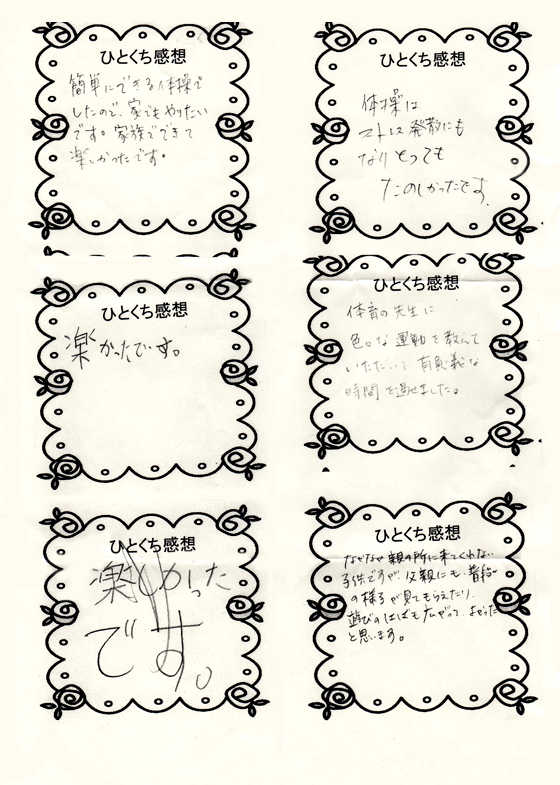 ひとくち感想
簡単にできる体操で
したので、家でもやりたい
です。家族でできて
楽しかったです。
ひとくち感想
体操は
ストレス発散にも
なりとっても
たのしかったです。
ひとくち感想
楽かったです。
ひとくち感想
体育の先生に
色々な運動を教えて
いただいて有意義な
時間を過せました。
ひとくち感想
楽しかった
です。
ひとくち感想
なかなか親の所に来てくれない
子供ですが、父親にも、普段
の様子が見てもらえたり、
遊びのはばも広がって、よかった
と思います。